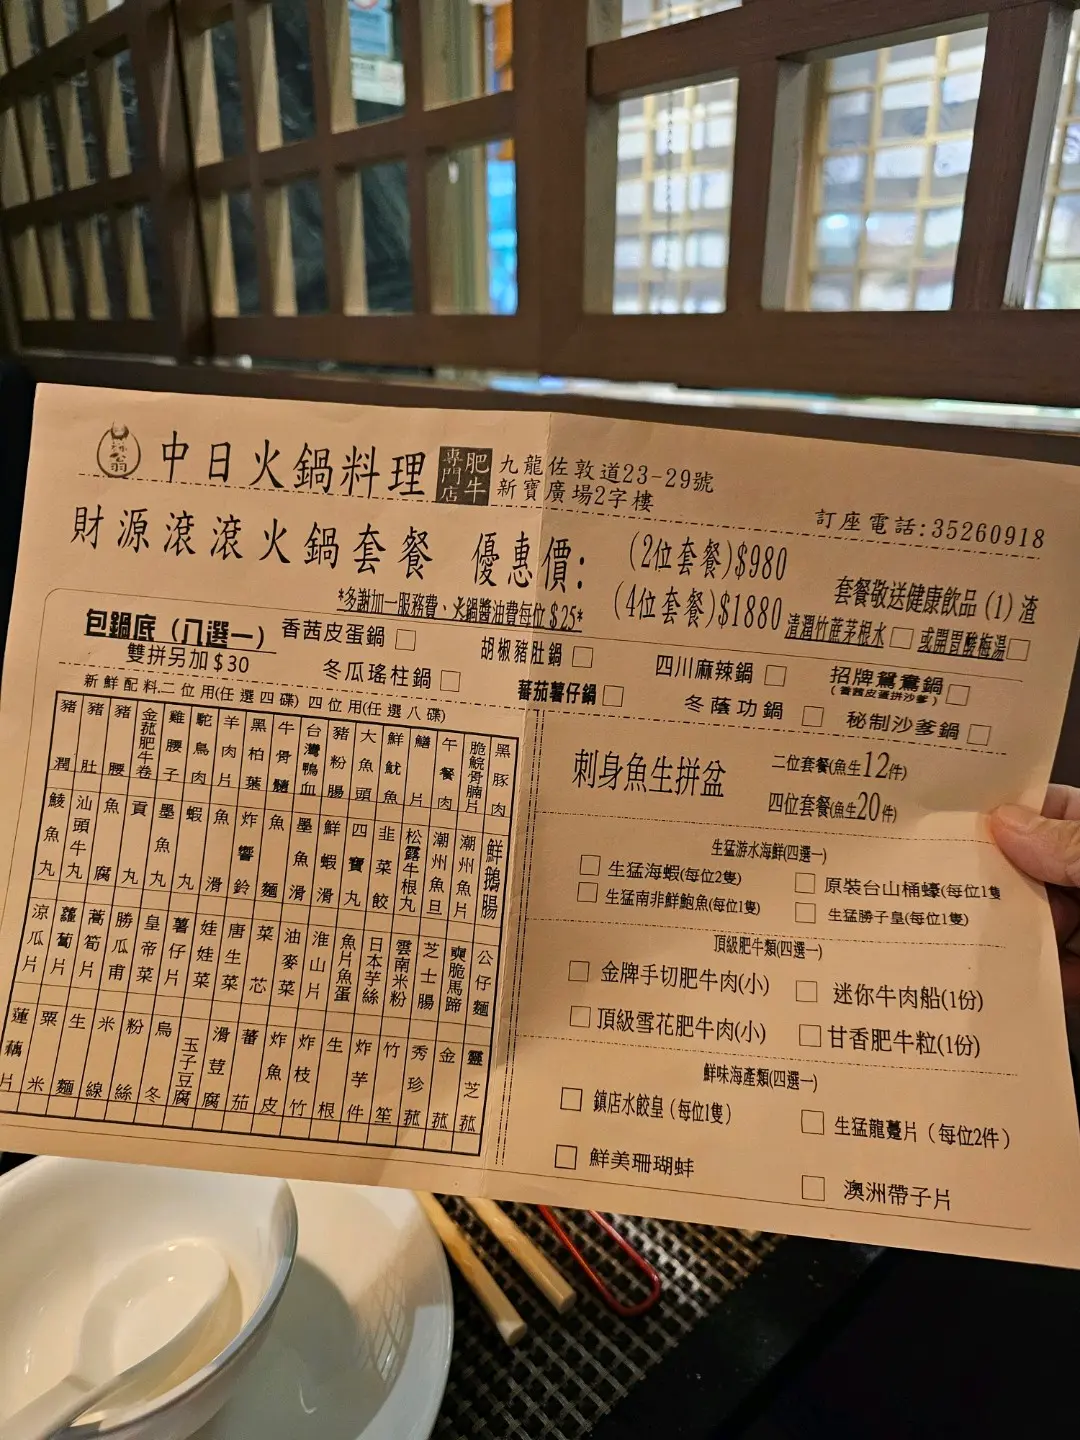 中日火鍋料理 肥牛專門店
九龍佐敦道23-29號
新寶廣場2字樓
訂座電話:35260918
財源滾滾火鍋套餐 優惠價:
(2位套餐)$980
(4位套餐)$1880
套餐敬送健康飲品 (1) 渣
清潤竹蔗茅根水 □ 或開胃酸梅湯 □
*多謝加一服務費、火鍋醬油費每位$25*
包鍋底 (八選一)
雙拼另加$30
香茜皮蛋鍋 □ 胡椒豬肚鍋 □ 四川麻辣鍋 □ 招牌鴛鴦鍋 □
(香茜皮蛋拼沙爹)
冬瓜瑤柱鍋 □ 蕃茄薯仔鍋 □ 冬蔭功鍋 □ 秘制沙爹鍋 □
新鮮配料二位用(任選四碟) 四位用(任選八碟)
豬潤 豬肚 豬腰 金菰肥牛卷 雞腰子 駝鳥肉 羊肉片 黑柏葉 牛骨髓 台灣鴨血 豬粉腸 大魚頭 鮮魷魚 鱔片 午餐肉 脆鯇骨腩片 黑豚肉
鯪魚丸 汕頭牛丸 魚腐 貢丸 墨魚丸 蝦丸 魚滑 炸響鈴 魚麵 墨魚滑 鮮蝦滑 四寶丸 韭菜餃 松露牛根丸 潮州魚旦 潮州魚片 鮮鵝腸
涼瓜片 蘿蔔片 萵筍片 勝瓜甫 皇帝菜 薯仔片 娃娃菜 唐生菜 菜芯 油麥菜 淮山片 魚片魚蛋 日本芋絲 雲南米粉 芝士腸 爽脆馬蹄 公仔麵
蓮藕片 粟米 生麵 米線 粉絲 烏冬 玉子豆腐 滑荳腐 蕃茄 炸魚皮 炸枝竹 生根 炸芋件 竹笙 秀珍菰 金菰 靈芝菰
刺身魚生拼盆
二位套餐(魚生12件)
四位套餐(魚生20件)
生猛游水海鮮(四選一)
□ 生猛海蝦(每位2隻) □ 原裝台山桶蠔(每位1隻
□ 生猛南非鮮鮑魚(每位1隻) □ 生猛勝子皇(每位1隻)
頂級肥牛類(四選一)
□ 金牌手切肥牛肉(小) □ 迷你牛肉船(1份)
□ 頂級雪花肥牛肉(小) □ 甘香肥牛粒(1份)
鮮味海產類(四選一)
□ 鎮店水餃皇(每位1隻) □ 生猛龍躉片(每位2件)
□ 鮮美珊瑚蚌 □ 澳洲帶子片